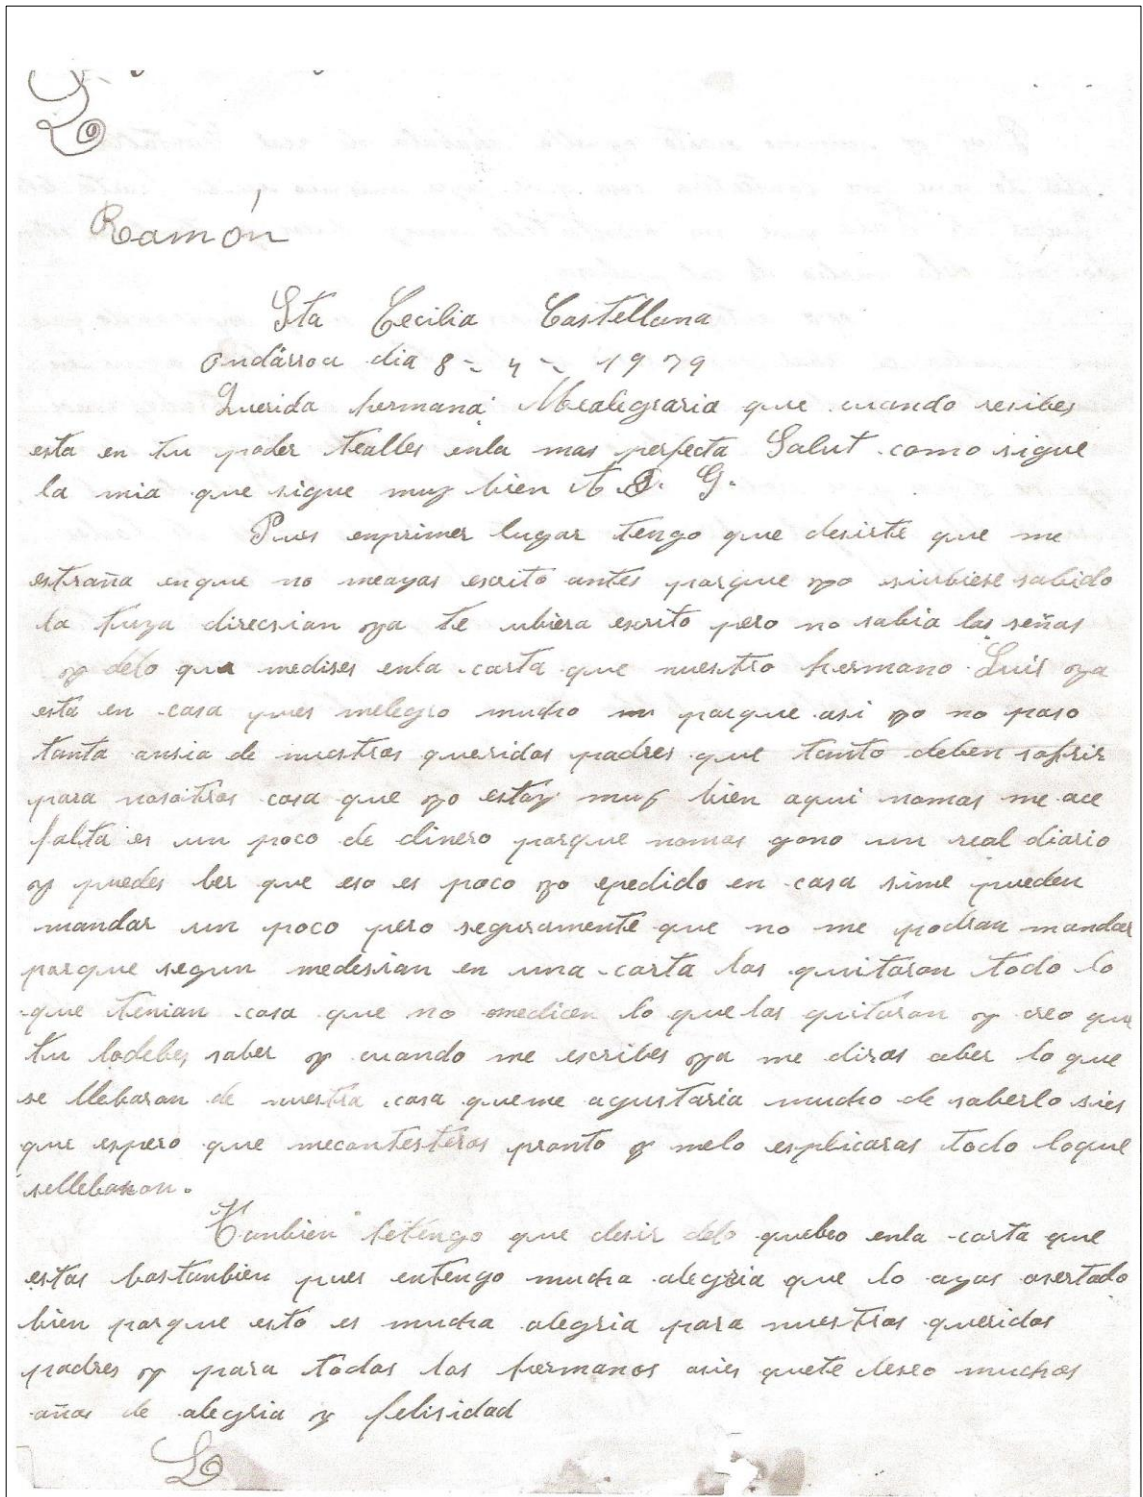 Ramón
Sta Cecilia Castellana
Ondárroa dia 8 - 4 - 1939
Querida hermana: Mealegraria que cuando resibes
esta en tu poder tealles enla mas perfecta Salut como sigue
la mia que sigue muy bien A. D. G.
Pues enprimer lugar tengo que desirte que me
estraña enque no meayas escrito antes porque yo siubiese sabido
la tuya direcsian ya te ubiera escrito pero no sabia las señas
y delo que medises enla carta que nuestro hermano Luis ya
está en casa pues melegro mucho porque asi yo no paso
tanta ansia de nuestros queridos padres que tanto deben sofrir
para nosoitros cosa que yo estoy muy bien aqui nomas me ace
falta es un poco de dinero porque nomas gono un real diario
y puedes ber que eso es poco yo epedido en casa sime pueden
mandar un poco pero seguramente que no me podran mandar
porque segun medesian en una carta los quitaron todo lo
que tenian cosa que no medicen lo que los quitaron y creo que
tu lodebes saber y cuando me escribes ya me diras aber lo que
se llebaron de nuestra casa queme agustaria mucho de saberlo sies
que espero que mecontesteras pronto y melo esplicaras todo loque
sellebaron.
Tanbien tetengo que desir delo quebeo enla carta que
estas bastanbien pues entengo mucha alegria que lo ayas asertado
bien porque esto es mucha alegria para nuestros queridos
padres y para todos los hermanos asies quete deseo muchos
años de alegria y felisidad